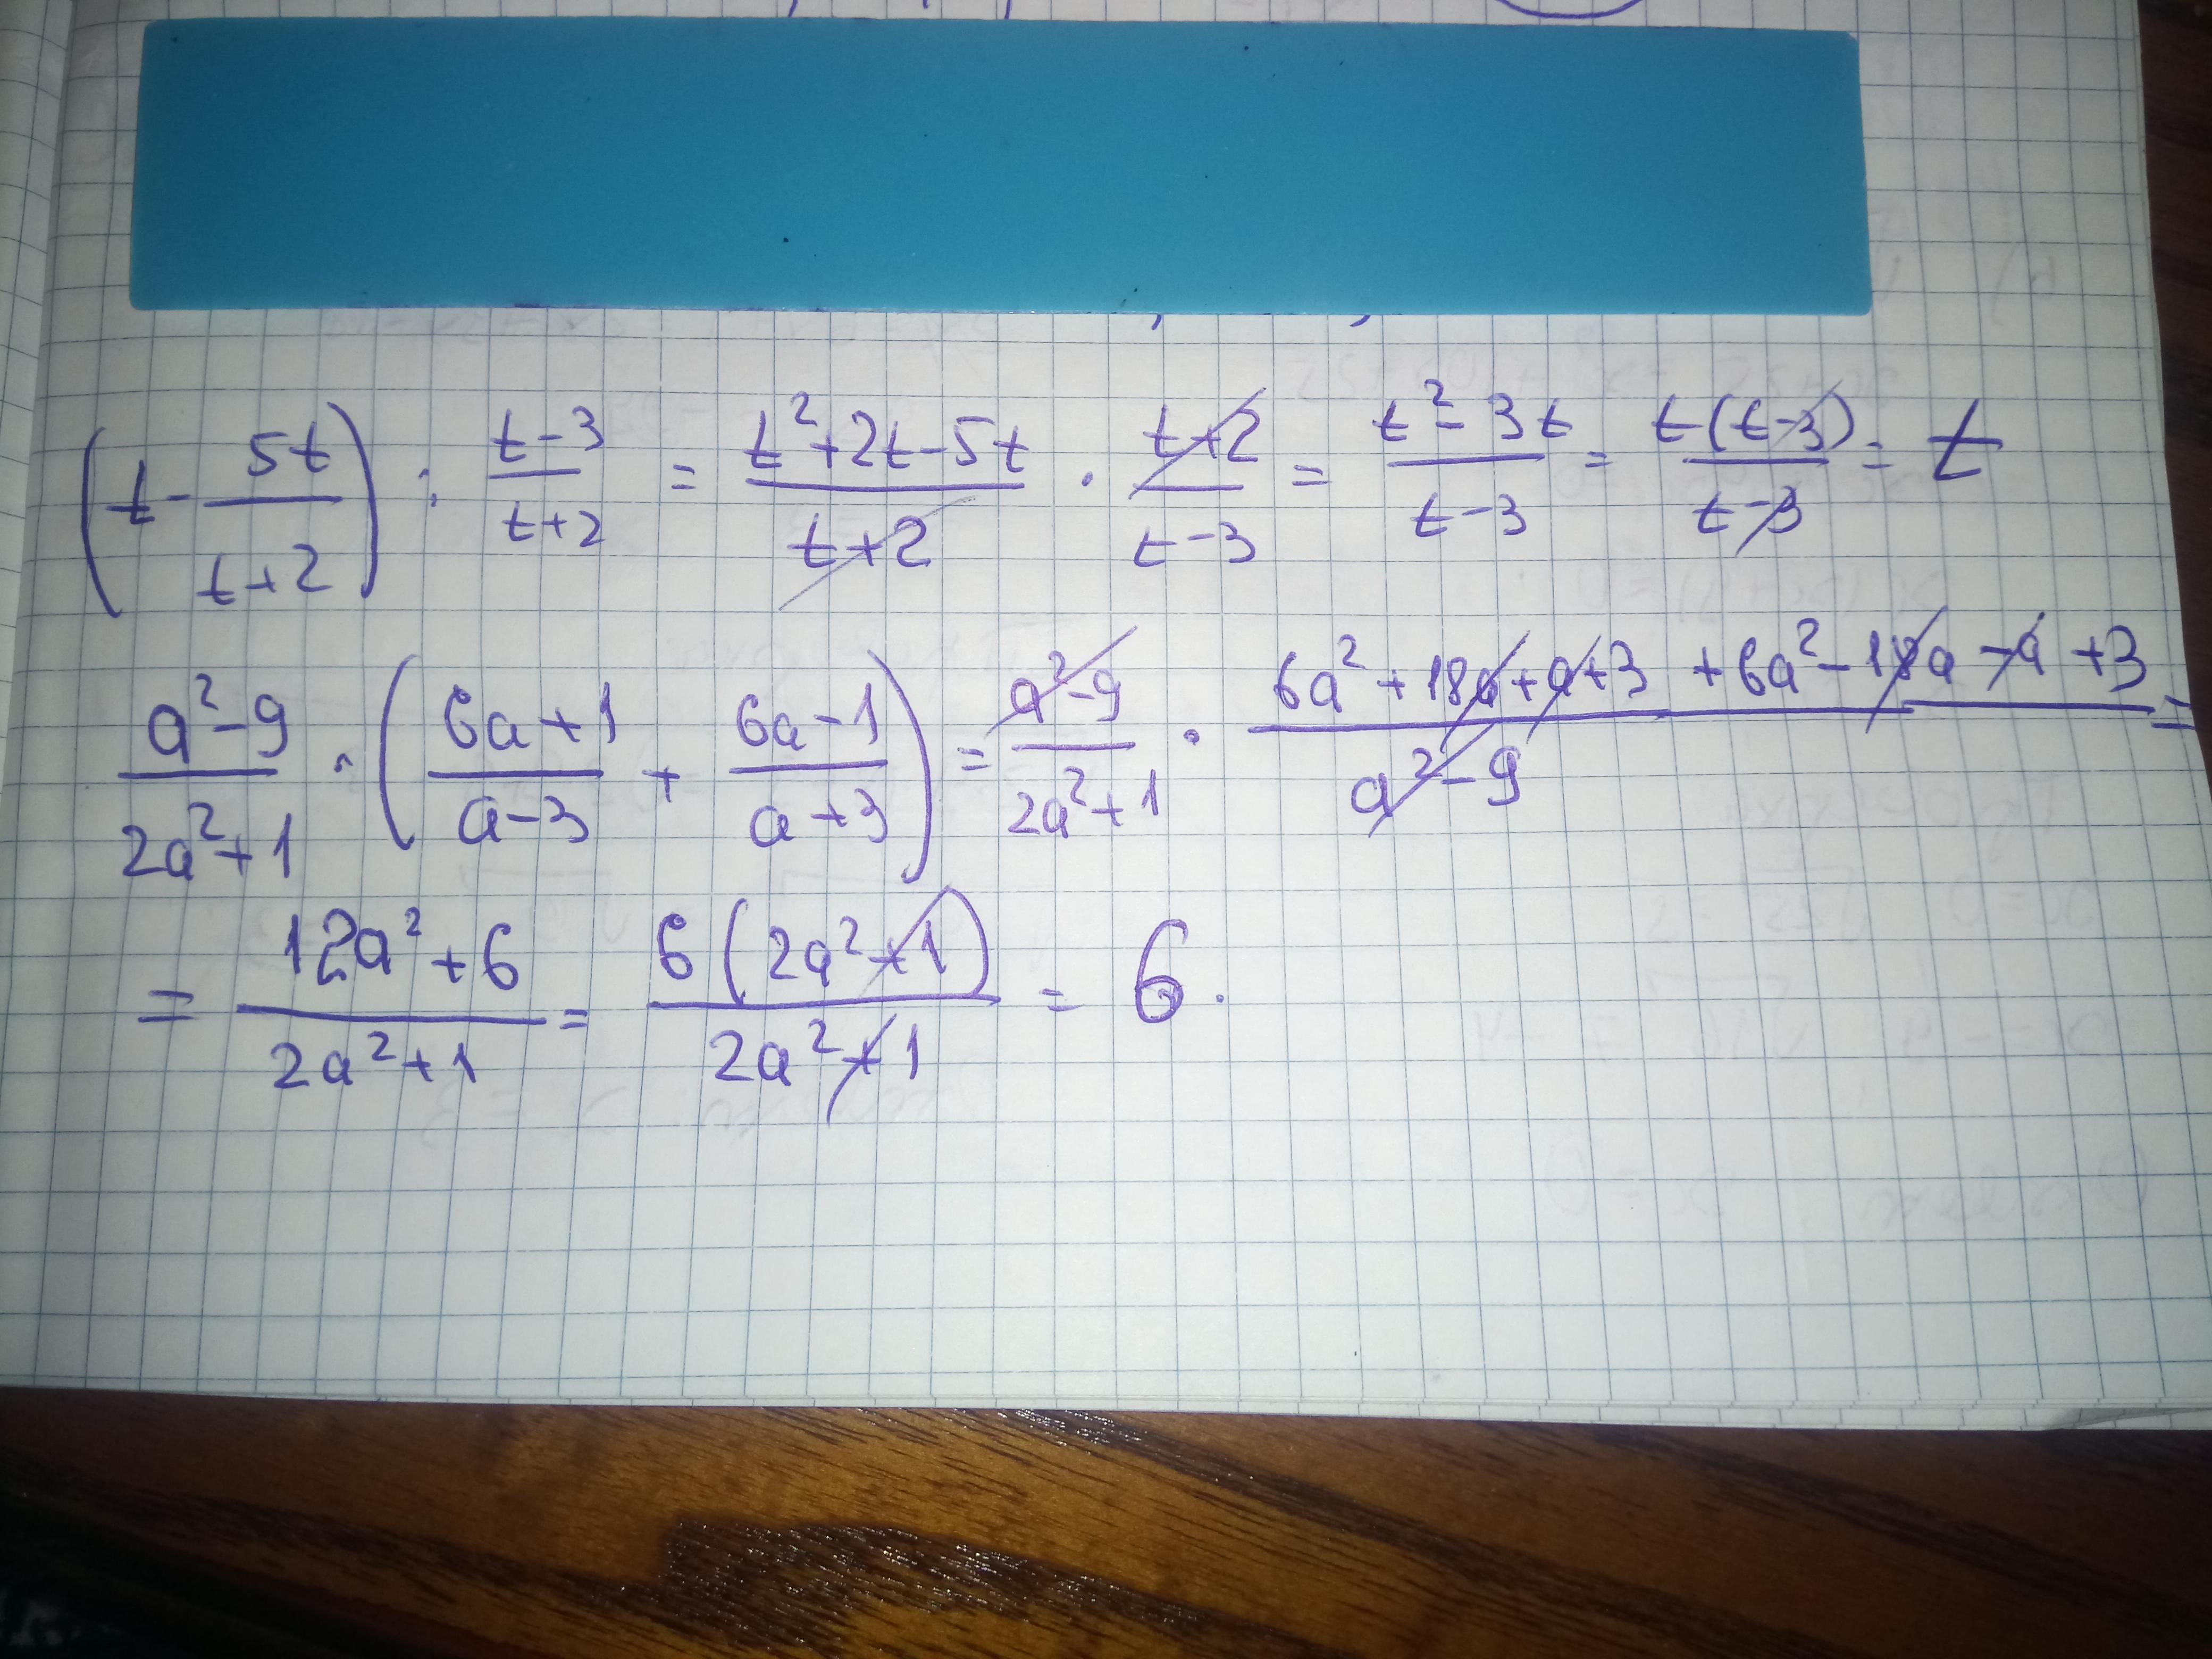 (t - 5t/(t+2)) : (t-3)/(t+2) = (t²+2t-5t)/(t+2) · (t+2)/(t-3) = (t²-3t)/(t-3) = t(t-3)/(t-3) = t
(a²-9)/(2a²+1) · ((6a+1)/(a-3) + (6a-1)/(a+3)) = (a²-9)/(2a²+1) · (6a²+18a+a+3+6a²-18a-a+3)/(a²-9) =
= (12a²+6)/(2a²+1) = 6(2a²+1)/(2a²+1) = 6.